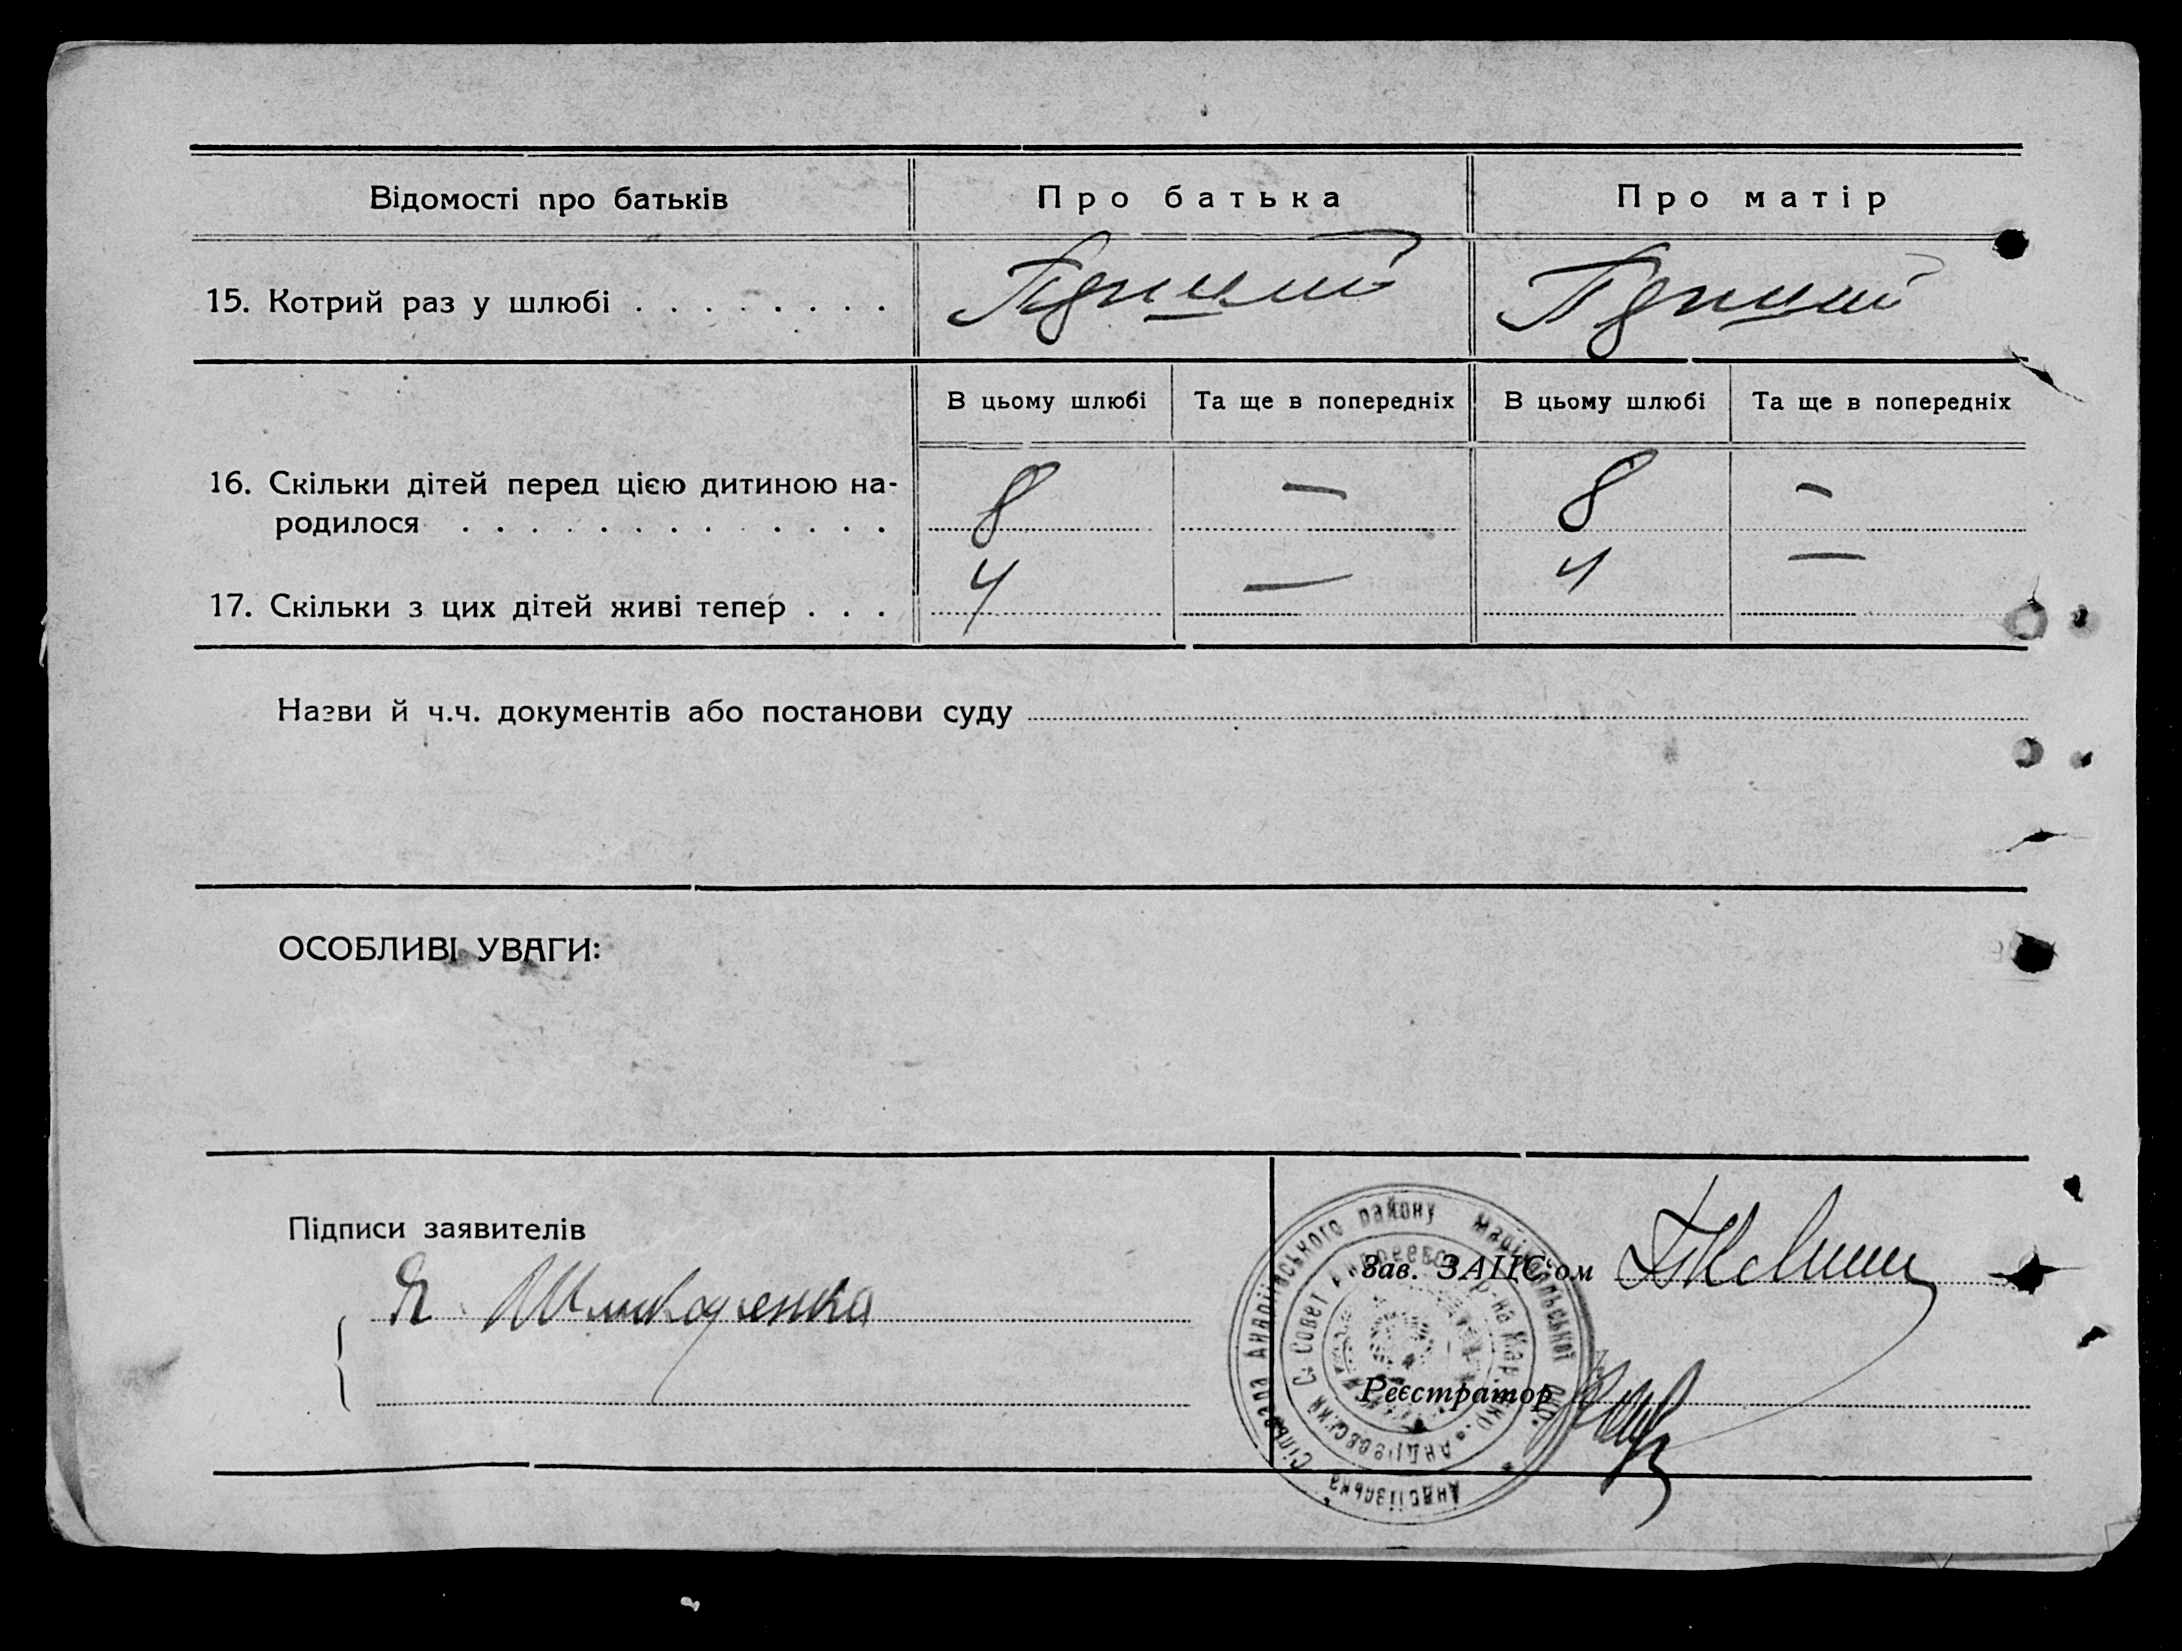 Відомості про батьків
Про батька
Про матір
15. Котрий раз у шлюбі . . . . . . . .
В цьому шлюбі
Та ще в попередніх
В цьому шлюбі
Та ще в попередніх
16. Скільки дітей перед цією дитиною на-
родилося . . . . . . . . . . . .
8 — 8 —
17. Скільки з цих дітей живі тепер . . .
4 — 4 —
Назви й ч.ч. документів або постанови суду
ОСОБЛИВІ УВАГИ:
Підписи заявителів
Зав. ЗАПС'ом
Реєстратор
Андріївська Сільрада Андріївського району Маріюпольської окр.